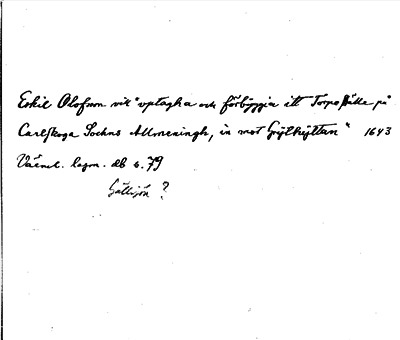 Eskil Olofson vill "uptagha och förbyggia itt Torpeställe på
Carlskoga Sochns Allmeningh, in mot Grythyttan" 1643
Värml. lagm. db s. 79
Gällejön ?